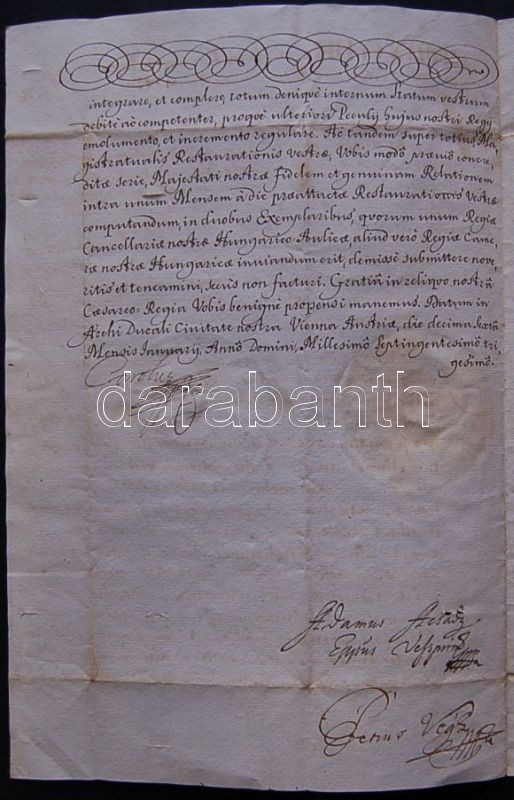 integrare, et complere, totum deniquè internum Statum vestrum
debitè ac competenter, proquè ulteriori Peculij hujus nostri Regij
emolumento, et incremento regulare. Ac tandem super totius Ma,
gistratualis Restaurationis vestræ, Vobis modò præviò concre,
ditæ serie, Majestati nostræ fidelem et genuinam Relationem
intra unum Mensem à die præattactæ Restaurationis Vestræ
computandum, in duobus Exemplaribus, quorum unum Regiæ
Cancellariæ nostræ Hungarico-Aulicæ, aliud verò Regiæ Came,
ræ nostræ Hungaricæ inviandum erit, demissè submittere nove,
ritis et teneamini, secus non facturi. Gratia in reliquo nostra
Cæsareo-Regia Vobis benignè propensi manemus. Datum in
Archi Ducali Civitate nostra Vienna Austriæ, die decima sexta
Mensis Januarij, Annò Domini, Millesimò Septingentesimò tri,
gesimò.
Carolus
darabanth
Adamus Acsády
Eppus Veszprim
Petrus Végh